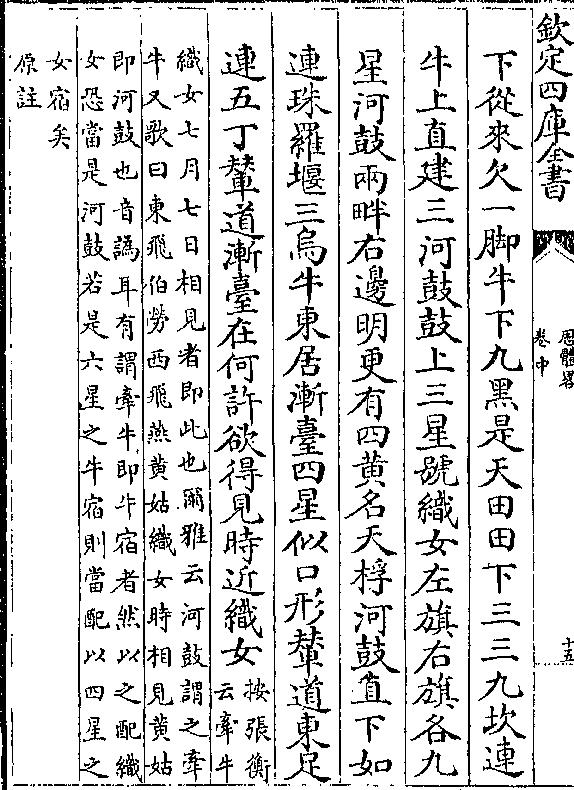 欽定四庫全書
厯體畧
卷中
十五
下從來欠一脚牛下九黑是天田田下三三九坎連
牛上直建三河鼓鼓上三星號織女左旗右旗各九
星河鼓兩畔右邊明更有四黄名天桴河鼓直下如
連珠羅堰三烏牛東居漸臺四星似口形輦道東足
連五丁輦道漸臺在何許欲得見時近織女
按張衡
云牽牛
織女七月七日相見者即此也爾雅云河鼓謂之牽
牛又歌曰東飛伯勞西飛燕黄姑織女時相見黄姑
即河鼓也音譌耳有謂牽牛即牛宿者然以之配織
女恐當是河鼓若是六星之牛宿則當配以四星之
女宿矣
原註